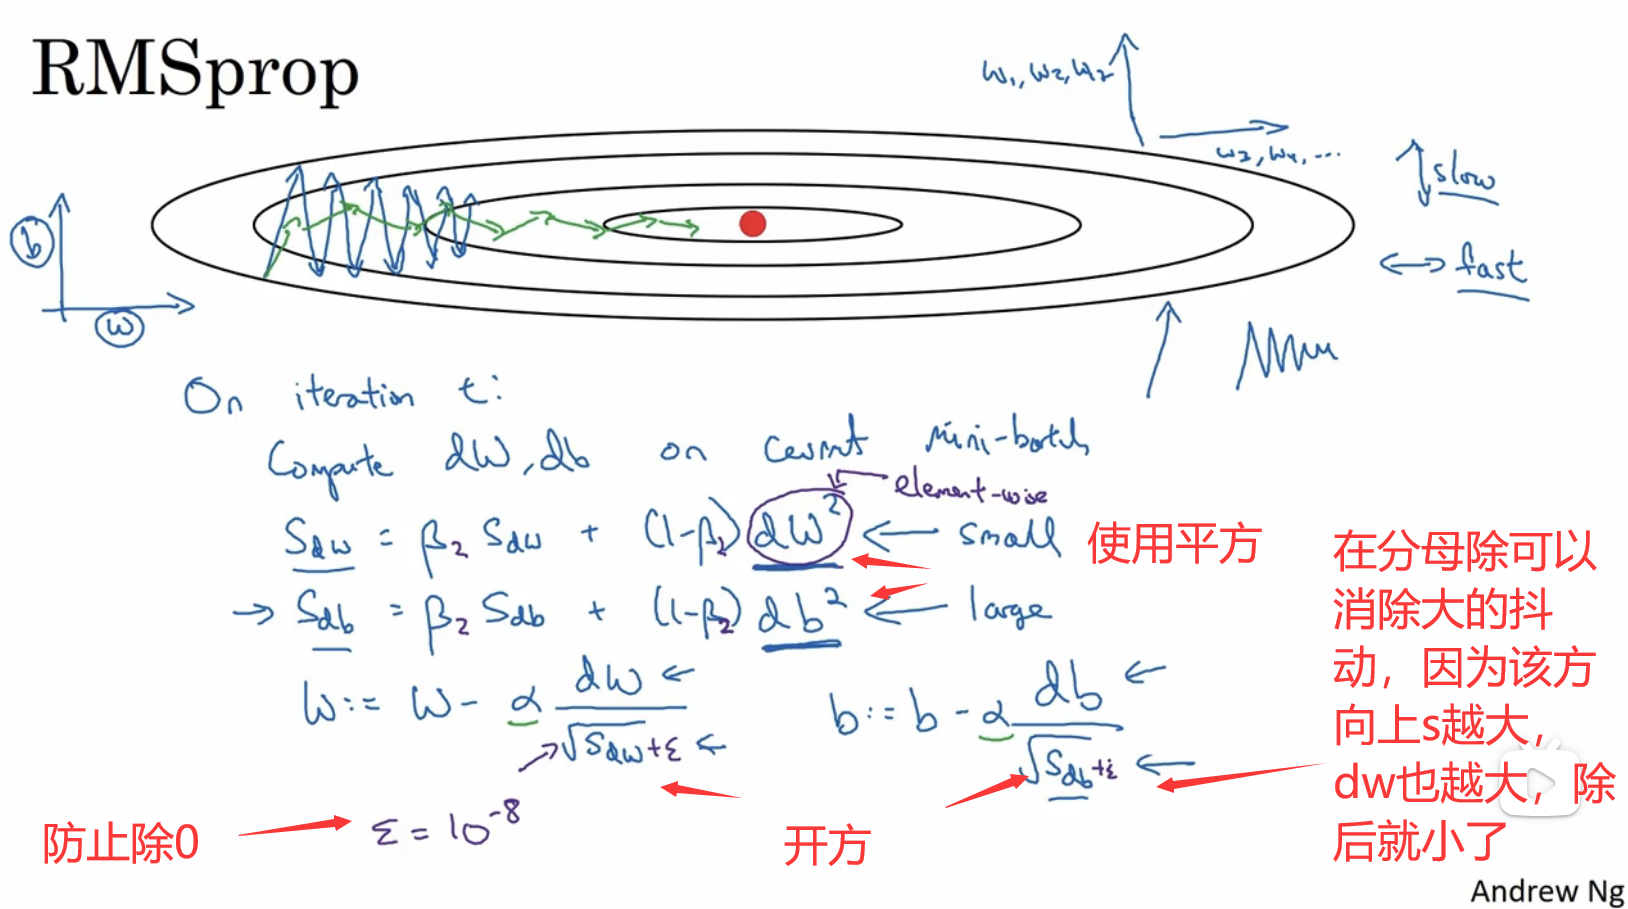 RMSprop
w₁, w₂, w₇
w₃, w₄, ...
slow
b
fast
w
On iteration t:
Compute dW, db on current mini-batch
element-wise
S_dw = β₂ S_dw + (1-β₂) dW² ← small
使用平方
→ S_db = β₂ S_db + (1-β₂) db² ← large
w := w - α dw / √S_dw + ε ←
b := b - α db / √S_db + ε ←
在分母除可以
消除大的抖
动，因为该方
向上s越大，
dw也越大，除
后就小了
防止除0
ε = 10⁻⁸
开方
Andrew Ng